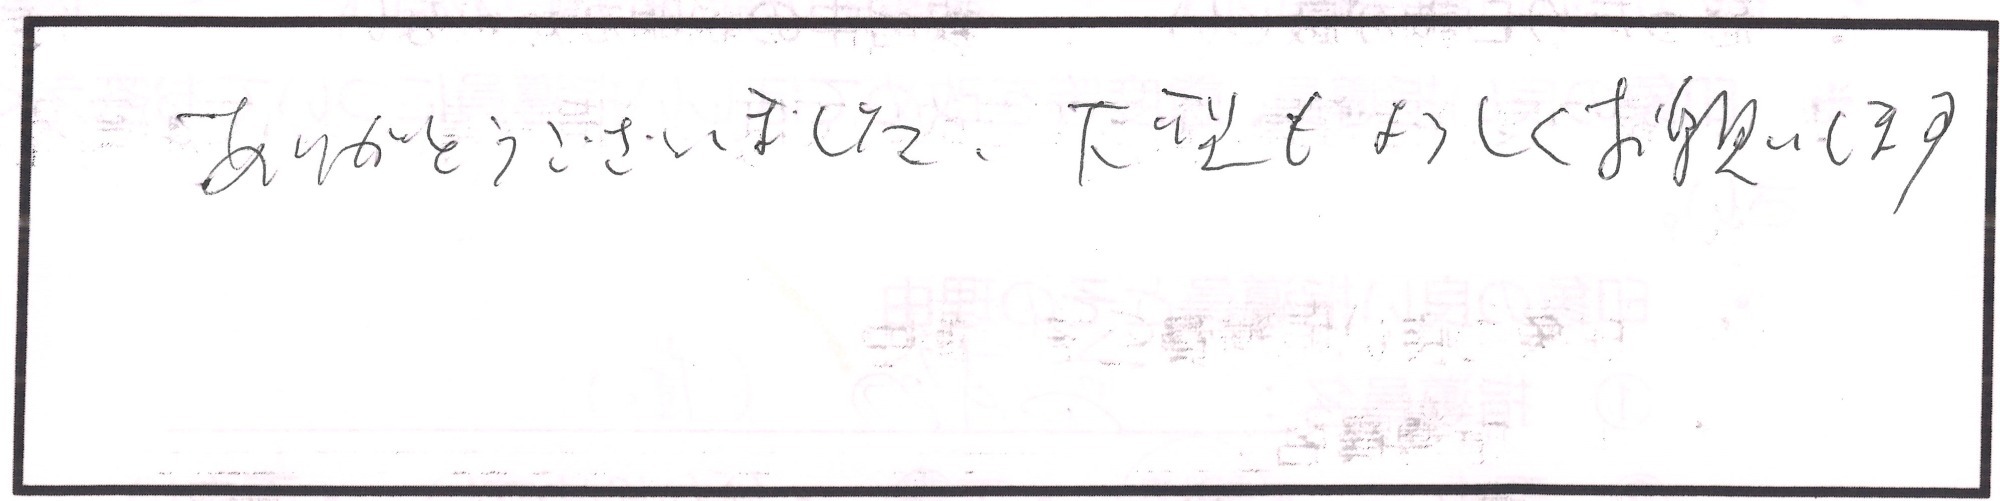 ありがとうございました、大型もよろしくお願いします